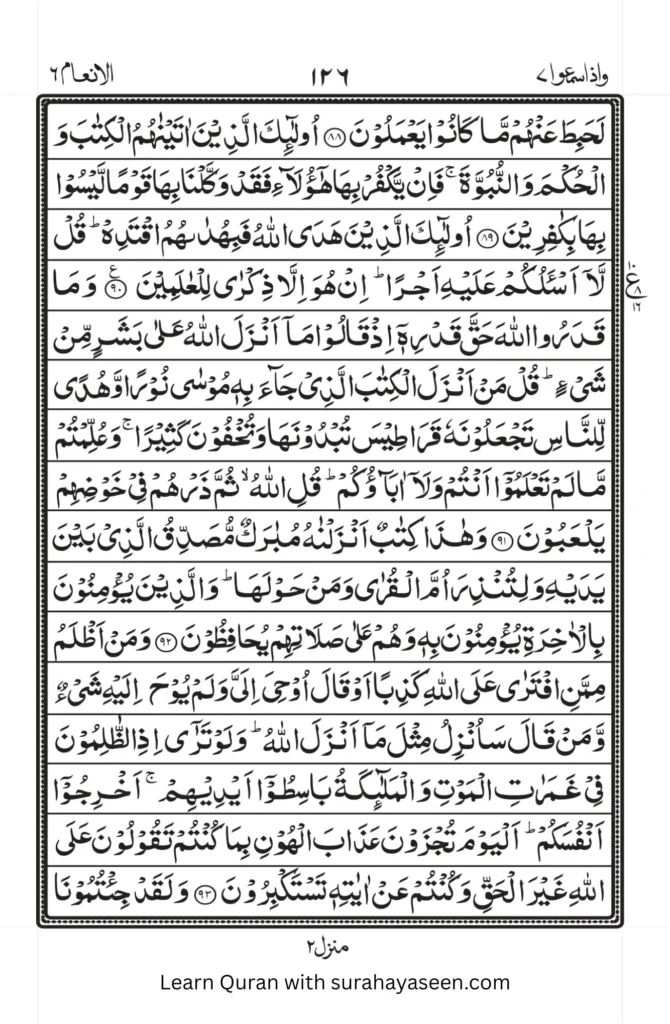 واذاسمعوا ٧ ١٢٦ الانعام ٦
لَحَبِطَ عَنْهُمْ مَّا كَانُوْا يَعْمَلُوْنَ ﴿۸۸﴾ اُولٰٓئِكَ الَّذِيْنَ اٰتَيْنٰهُمُ الْكِتٰبَ وَ
الْحُكْمَ وَالنُّبُوَّةَ ۚ فَاِنْ يَّكْفُرْ بِهَا هٰٓؤُلَآءِ فَقَدْ وَكَّلْنَا بِهَا قَوْمًا لَّيْسُوْا
بِهَا بِكٰفِرِيْنَ ﴿۸۹﴾ اُولٰٓئِكَ الَّذِيْنَ هَدَى اللّٰهُ فَبِهُدٰىهُمُ اقْتَدِهْ ؕ قُلْ
لَّاۤ اَسْـَٔلُكُمْ عَلَيْهِ اَجْرًا ؕ اِنْ هُوَ اِلَّا ذِكْرٰى لِلْعٰلَمِيْنَ ﴿۹۰﴾ ع وَمَا
قَدَرُوا اللّٰهَ حَقَّ قَدْرِهٖۤ اِذْ قَالُوْا مَاۤ اَنْزَلَ اللّٰهُ عَلٰى بَشَرٍ مِّنْ
شَىْءٍ ؕ قُلْ مَنْ اَنْزَلَ الْكِتٰبَ الَّذِىْ جَآءَ بِهٖ مُوْسٰى نُوْرًا وَّهُدًى
لِّلنَّاسِ تَجْعَلُوْنَهٗ قَرَاطِيْسَ تُبْدُوْنَهَا وَتُخْفُوْنَ كَثِيْرًا ۚ وَعُلِّمْتُمْ
مَّا لَمْ تَعْلَمُوْۤا اَنْتُمْ وَلَاۤ اٰبَآؤُكُمْ ؕ قُلِ اللّٰهُ ۙ ثُمَّ ذَرْهُمْ فِىْ خَوْضِهِمْ
يَلْعَبُوْنَ ﴿۹۱﴾ وَهٰذَا كِتٰبٌ اَنْزَلْنٰهُ مُبٰرَكٌ مُّصَدِّقُ الَّذِىْ بَيْنَ
يَدَيْهِ وَلِتُنْذِرَ اُمَّ الْقُرٰى وَمَنْ حَوْلَهَا ؕ وَالَّذِيْنَ يُؤْمِنُوْنَ
بِالْاٰخِرَةِ يُؤْمِنُوْنَ بِهٖ وَهُمْ عَلٰى صَلَاتِهِمْ يُحَافِظُوْنَ ﴿۹۲﴾ وَمَنْ اَظْلَمُ
مِمَّنِ افْتَرٰى عَلَى اللّٰهِ كَذِبًا اَوْ قَالَ اُوْحِىَ اِلَىَّ وَلَمْ يُوْحَ اِلَيْهِ شَىْءٌ
وَّمَنْ قَالَ سَاُنْزِلُ مِثْلَ مَاۤ اَنْزَلَ اللّٰهُ ؕ وَلَوْ تَرٰٓى اِذِ الظّٰلِمُوْنَ
فِىْ غَمَرٰتِ الْمَوْتِ وَالْمَلٰٓئِكَةُ بَاسِطُوْۤا اَيْدِيْهِمْ ۚ اَخْرِجُوْۤا
اَنْفُسَكُمْ ؕ اَلْيَوْمَ تُجْزَوْنَ عَذَابَ الْهُوْنِ بِمَا كُنْتُمْ تَقُوْلُوْنَ عَلَى
اللّٰهِ غَيْرَ الْحَقِّ وَكُنْتُمْ عَنْ اٰيٰتِهٖ تَسْتَكْبِرُوْنَ ﴿۹۳﴾ وَلَقَدْ جِئْتُمُوْنَا
منزل ٢
Learn Quran with surahayaseen.com